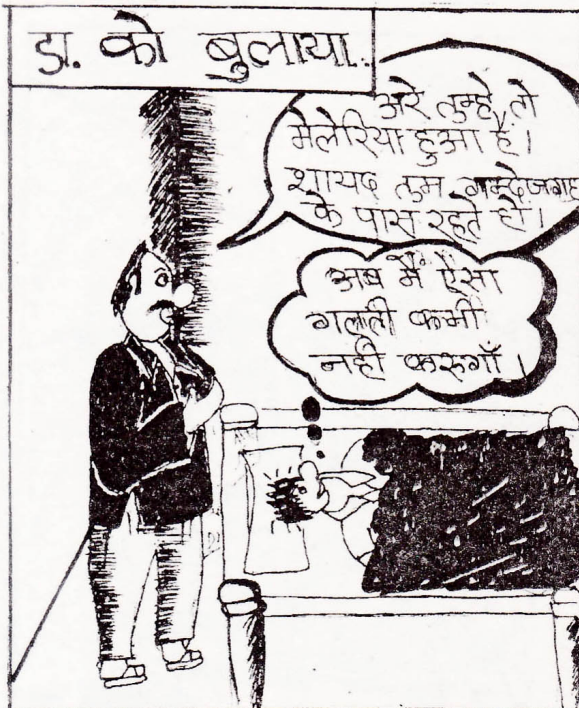 डा. को बुलाया..
अरे तुम्हे तो
मेलेरिया हुआ है।
शायद तुम गन्देजगह
के पास रहते हो।
अब मैं ऐसा
गलती कभी
नही करुगाँ।